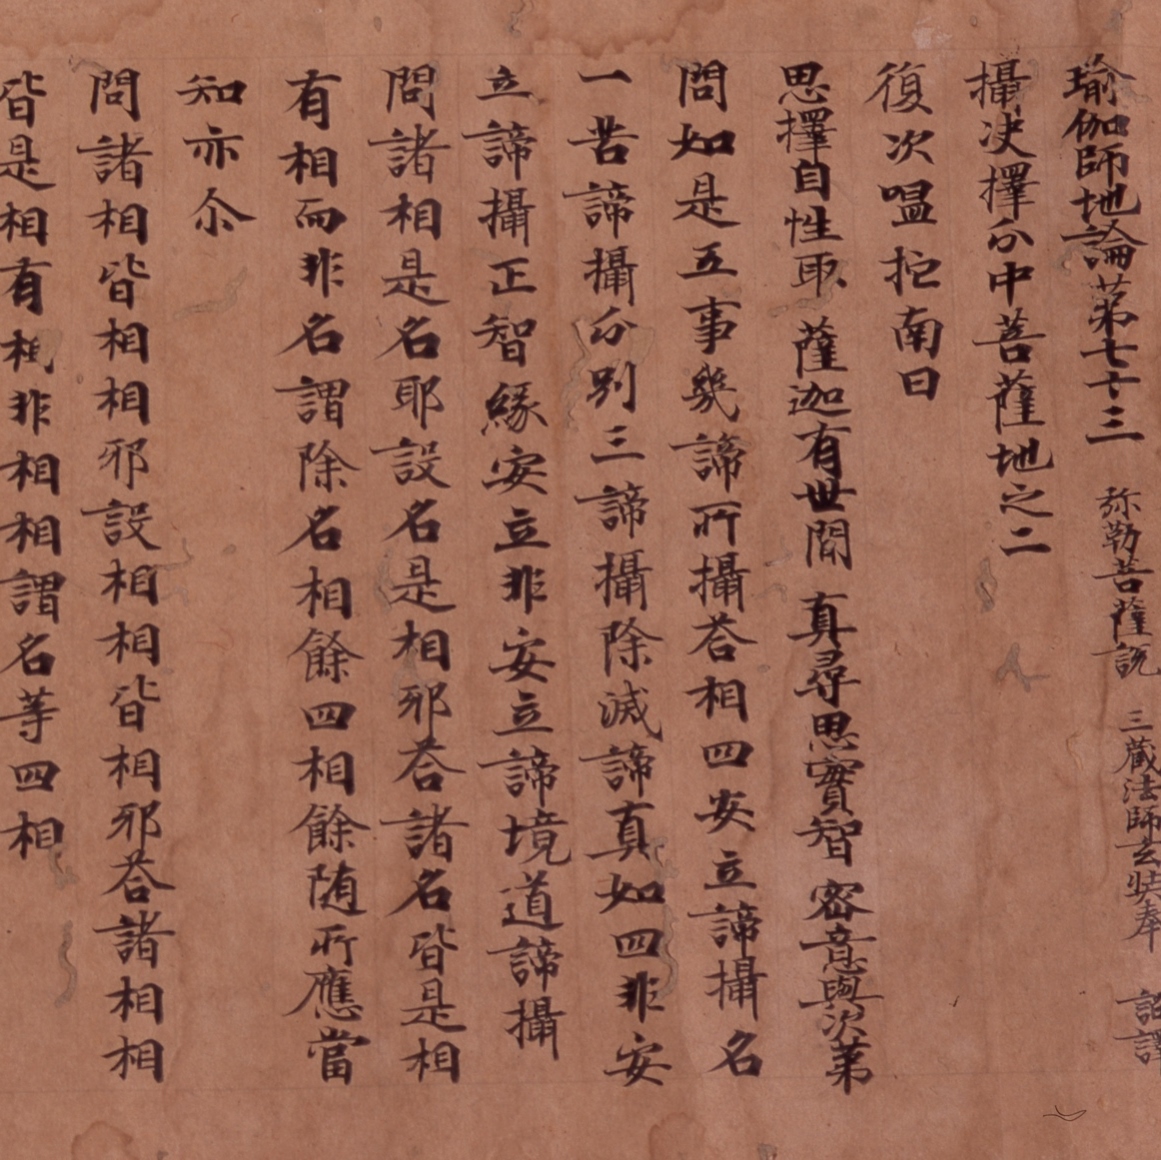 瑜伽師地論第七十三 弥勒菩薩說 三藏法師玄奘奉 詔譯
攝决擇分中菩薩地之二
復次嗢拕南曰
思擇自性取 薩迦有世間 真尋思實智 密意與次第
問如是五事幾諦所攝荅相四安立諦攝名
一苦諦攝分別三諦攝除滅諦真如四非安
立諦攝正智緣安立非安立諦境道諦攝
問諸相是名耶設名是相邪荅諸名皆是相
有相而非名謂除名相餘四相餘随所應當
知亦尒
問諸相皆相相邪設相相皆相邪荅諸相相
皆是相有相非相相謂名等四相